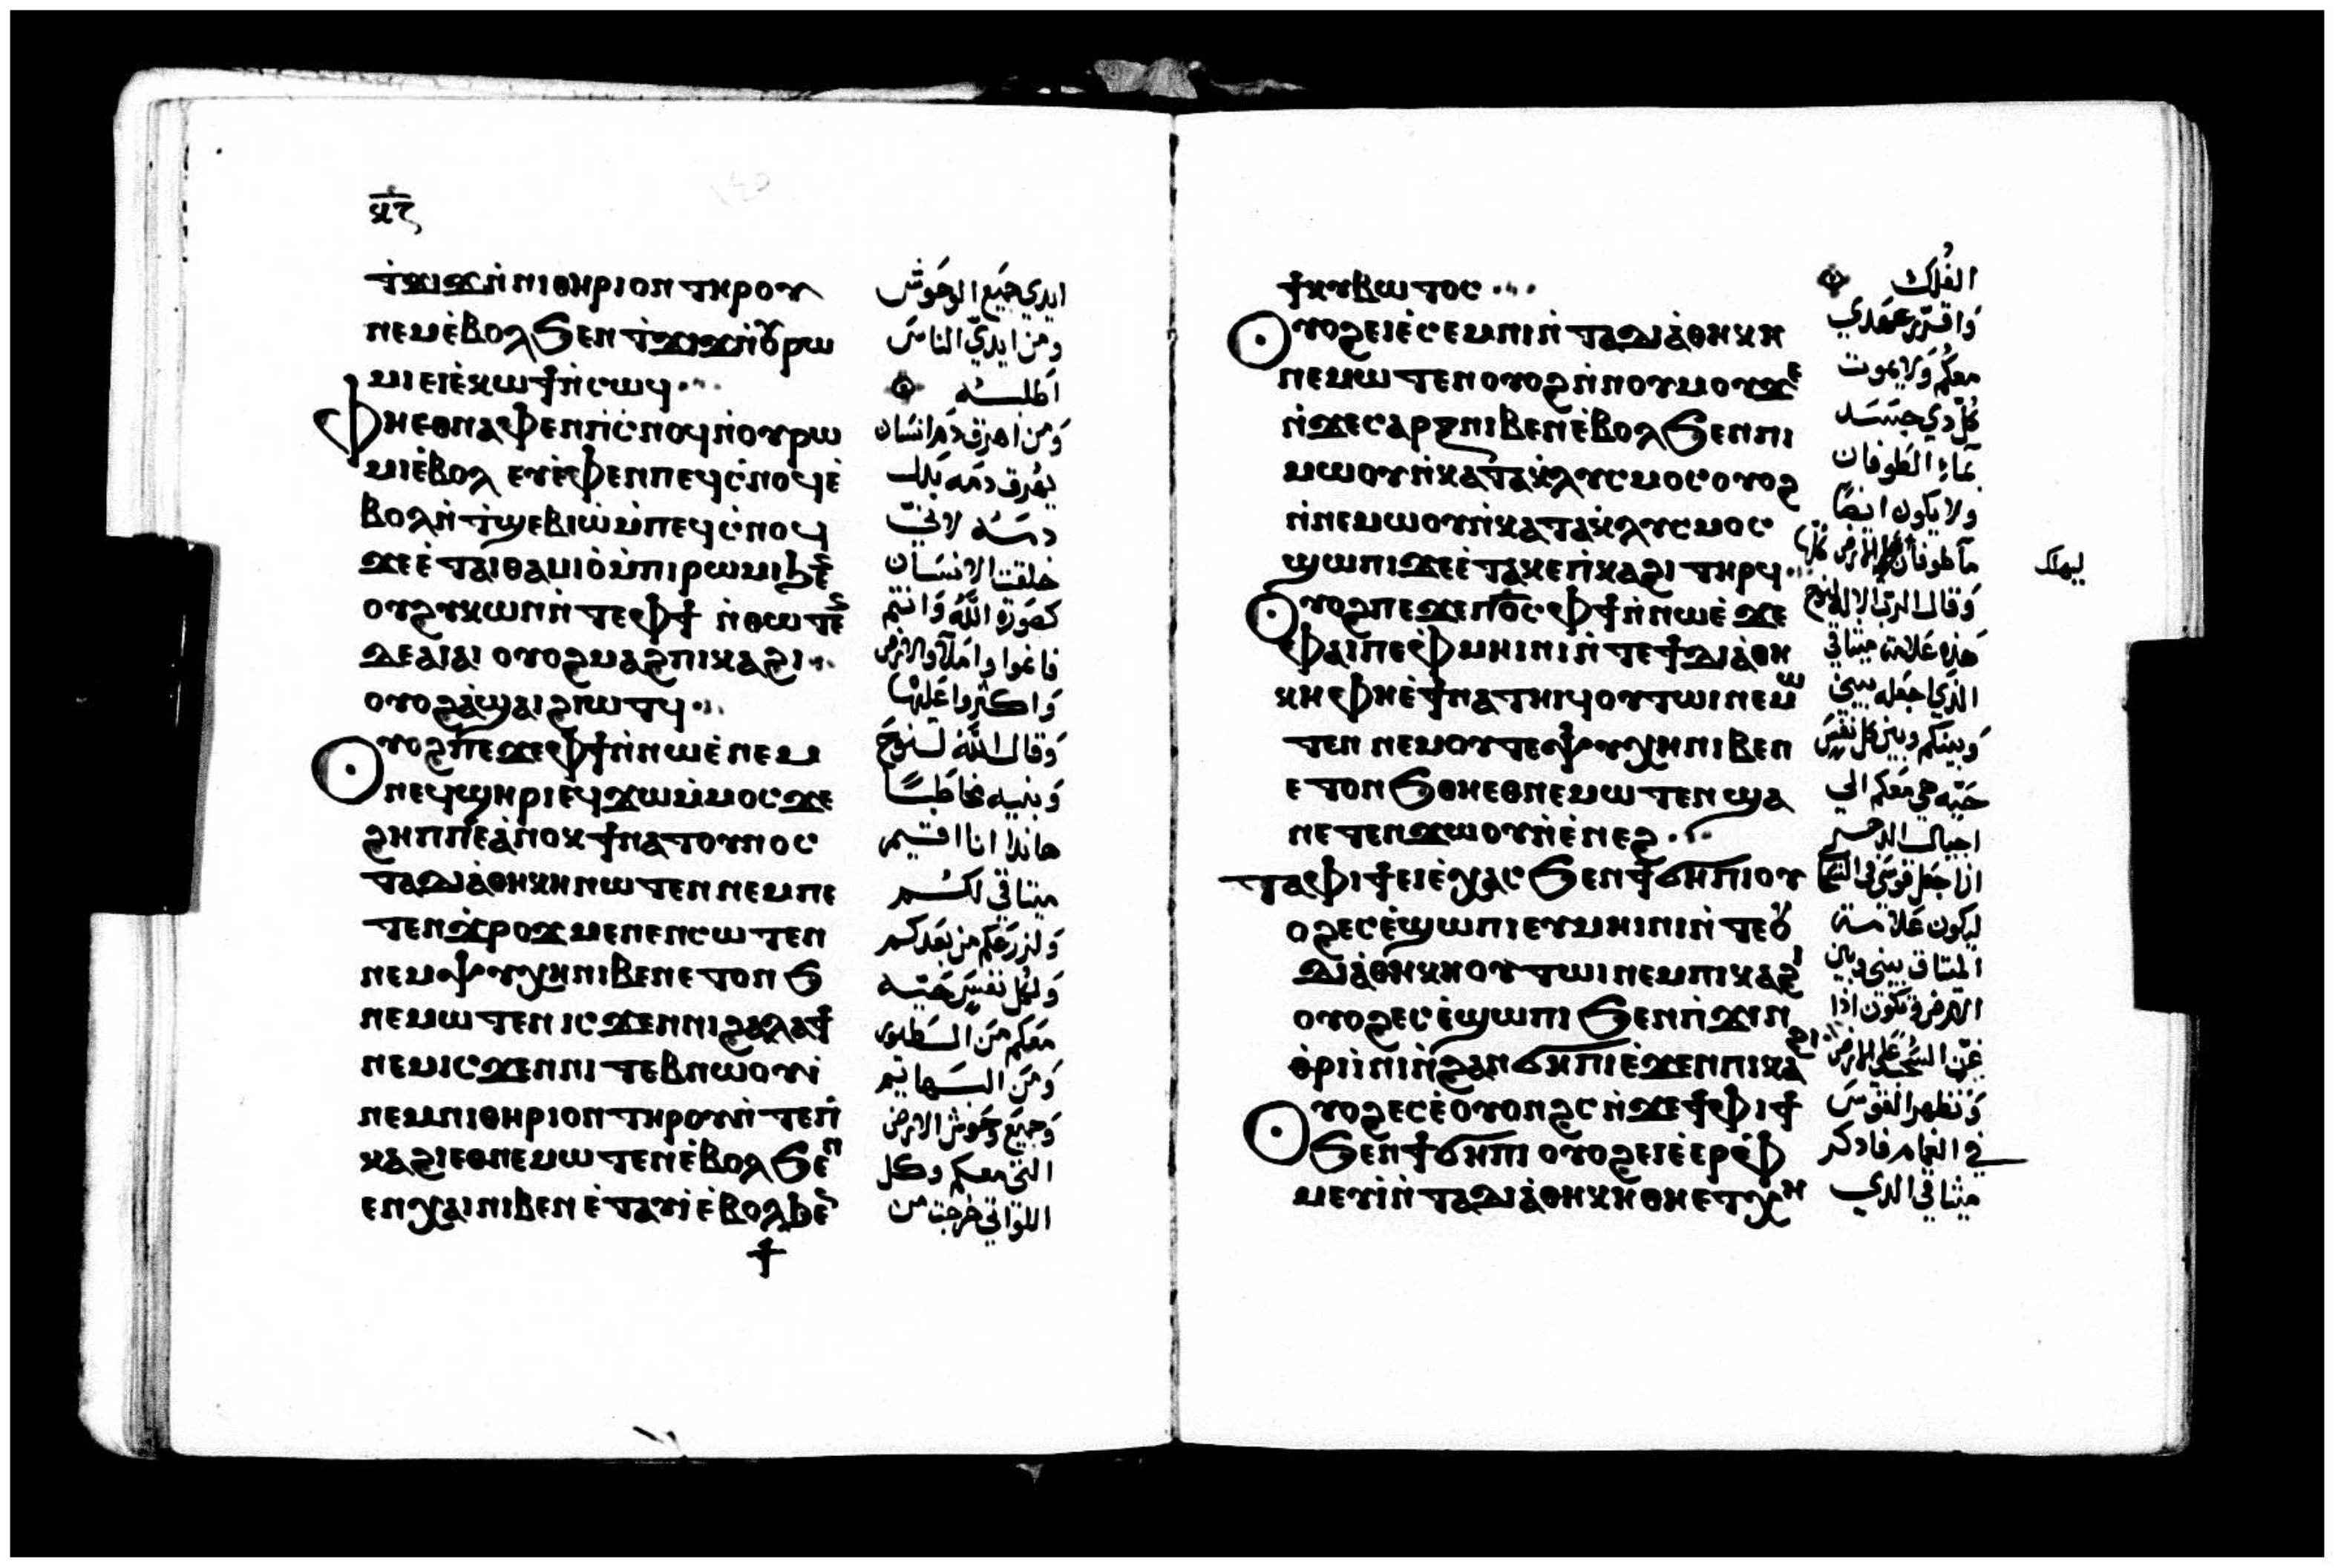 ⲕ̅ⲋ̅
ⲧ̀ϫⲓϫⲛ̀ⲛⲓⲑⲏⲣⲓⲟⲛ ⲧⲏⲣⲟⲩ
ⲛⲉⲙⲉ̀ⲃⲟⲗϧⲉⲛ ⲧ̀ϫⲓϫⲛ̀ⲟⲩⲣⲱ
ⲙⲓ ⲉⲓⲉ̀ⲕⲱϯⲛ̀ⲥⲱϥ
ⲫⲏⲉⲑⲛⲁⲫⲉⲛⲡⲓⲥ̀ⲛⲟϥⲛ̀ⲟⲩⲣⲱ
ⲙⲓⲉ̀ⲃⲟⲗ ⲉⲩⲉ̀ⲫⲉⲛⲡⲉϥⲥ̀ⲛⲟϥⲉ̀
ⲃⲟⲗⲛ̀ⲧ̀ϣⲉⲃⲓⲱ̀ⲙ̀ⲡⲉϥⲥ̀ⲛⲟϥ
ϫⲉⲉ̀ⲧⲁⲓⲑⲁⲙⲓⲟ̀ⲙ̀ⲡⲓⲣⲱⲙⲓϧⲉⲛ
ⲟⲩϩⲩⲕⲱⲛⲛ̀ⲧⲉⲫϯ ⲛ̀ⲑⲱⲧⲉⲛ
ⲇⲉⲁⲓⲁⲓ ⲟⲩⲟϩⲙⲁϩⲡⲓⲕⲁϩⲓ
ⲟⲩⲟϩⲁ̀ϣⲁⲓ ϩⲓⲱⲧϥ
ⲟⲩⲟϩⲡⲉϫⲉⲫϯⲛ̀ⲛⲱⲉ̀ ⲛⲉⲙ
ⲛⲉϥϣⲏⲣⲓⲉϥϫⲱⲙ̀ⲙⲟⲥϫⲉ
ϩⲏⲡⲡⲉⲁ̀ⲛⲟⲕ ϯⲛⲁⲧⲟⲩⲛⲟⲥ
ⲧⲁⲇⲓⲁ̀ⲑⲏⲕⲏⲛⲱⲧⲉⲛ ⲛⲉⲙⲡⲉ
ⲧⲉⲛϫ̀ⲣⲟϫ ⲙⲉⲛⲉⲛⲥⲱⲧⲉⲛ
ⲛⲉⲙⲯⲩⲭⲏⲛⲓⲃⲉⲛⲉⲧⲟⲛϧ
ⲛⲉⲙⲱⲧⲉⲛ ⲓⲥϫⲉⲛⲛⲓϩⲁⲗⲁϯ
ⲛⲉⲙⲓⲥϫⲉⲛⲛⲓⲧⲉⲃⲛⲱⲟⲩⲓ̀
ⲛⲉⲙⲛⲓⲑⲏⲣⲓⲟⲛ ⲧⲏⲣⲟⲩⲛ̀ⲧⲉⲡ̀
ⲕⲁϩⲓⲉⲑⲛⲉⲙⲱⲧⲉⲛⲉ̀ⲃⲟⲗϧⲉⲛ
ⲉⲛⲭⲁⲓⲛⲓⲃⲉⲛ ⲉ̀ⲧⲁⲩⲓ̀ⲉ̀ⲃⲟⲗϧⲉⲛ
ϯ
ايدي جميع الوحوش
ومن ايدي الناس
اطلبه
ومن اهرق دم انسان
يهرق دمه بدل
دمه لاني
خلقت الانسان
كصورة الله وانتم
فانموا واملأوا الارض
واكثروا عليها
وقال الله لنوح
وبنيه مخاطبًا
هاندا انا اقيم
ميثاقي لكم
ولزرعكم من بعدكم
ولكل نفس حية
معكم من الطيور
ومن البهائم
وجميع وحوش الارض
التي معكم وكل
اللواتي خرجت من
ϯⲕⲩⲃⲱⲧⲟⲥ
ⲟⲩⲟϩⲉⲓⲉ̀ⲥⲉⲙⲛⲓⲛ̀ ⲧⲁⲇⲓⲁ̀ⲑⲏⲕⲏ
ⲛⲉⲙⲱⲧⲉⲛⲟⲩⲟϩⲛ̀ⲛⲟⲩⲙⲟⲩϫⲉ
ⲛ̀ϫⲉⲥⲁⲣⲝⲛⲓⲃⲉⲛⲉ̀ⲃⲟⲗϧⲉⲛⲡⲓ
ⲙⲱⲟⲩⲛ̀ⲕⲁⲧⲁⲕ̀ⲗⲩⲥⲙⲟⲥⲟⲩⲟϩ
ⲛ̀ⲛⲉⲙⲱⲟⲩⲛ̀ⲕⲁⲧⲁⲕ̀ⲗⲩⲥⲙⲟⲥ
ϣⲱⲡⲓϫⲉⲉ̀ⲧⲁⲕⲉⲡ̀ⲕⲁϩⲓ ⲧⲏⲣϥ
ⲟⲩⲟϩⲡⲉϫⲉⲡⲟ̅ⲥ̅ⲫϯⲛ̀ⲛⲱⲉ̀ ϫⲉ
ⲫⲁⲓⲡⲉⲫ̀ⲙⲏⲓⲛⲓⲛ̀ⲧⲉϯⲇⲓⲁ̀ⲑⲏ
ⲕⲏⲫⲏⲉ̀ϯⲛⲁⲧⲏⲓϥⲟⲩⲧⲱⲓⲛⲉⲙⲱ
ⲧⲉⲛ ⲛⲉⲙⲟⲩⲧⲉⲯⲩⲭⲏⲛⲓⲃⲉⲛ
ⲉⲧⲟⲛϧⲑⲏⲉⲑⲛⲉⲙⲱⲧⲉⲛϣⲁ
ⲛⲉⲧⲉⲛϫⲱⲟⲩⲛ̀ⲉ̀ⲛⲉϩ
ⲧⲁⲫⲓϯⲉⲓⲉ̀ⲭⲁⲥϧⲉⲛϯϭⲏⲡⲓⲟⲩ
ⲟϩⲉⲥⲉ̀ϣⲱⲡⲓⲉⲩⲙⲏⲓⲛⲓⲛ̀ⲧⲉⲟⲩ
ⲇⲓⲁ̀ⲑⲏⲕⲏⲟⲩⲧⲱⲓⲛⲉⲙⲡⲓⲕⲁϩⲓ
ⲟⲩⲟϩⲉⲥⲉ̀ϣⲱⲡⲓϧⲉⲛⲡ̀ϫⲓⲛ
ⲑ̀ⲣⲓⲓ̀ⲛⲓⲛ̀ϩⲁⲛϭⲏⲡⲓⲉ̀ϫⲉⲛⲡⲓⲕⲁϩⲓ
ⲟⲩⲟϩⲉⲥⲉ̀ⲟⲩⲟⲛϩⲥ ⲛ̀ϫⲉϯⲫⲓϯ
ϧⲉⲛϯϭⲏⲡⲓ ⲟⲩⲟϩⲉⲓⲉ̀ⲉⲣⲫ̀
ⲙⲉⲩⲓ̀ⲛ̀ⲧⲁⲇⲓⲁ̀ⲑⲏⲕⲏⲑⲏⲉⲧⲭⲏ
الفُلك
واقرر عهدي
معكم ولا يموت
كل ذي جسد
بماء الطوفان
ولا يكون ايضًا
ما طوفان الارض كلها
يهلك
وقال الرب الاله لنوح
هذه علامة ميثاقي
الذي اجعله بيني
وبينكم وبين كل نفس
حية هي معكم الي
اجيال الدهر
انا اجعل قوسي في السحاب
ليكون علامة
الميثاق بيني وبين
الارض وتكون اذا
وتظهر القوس
في الغمام فاذكر
ميثاقي الذي